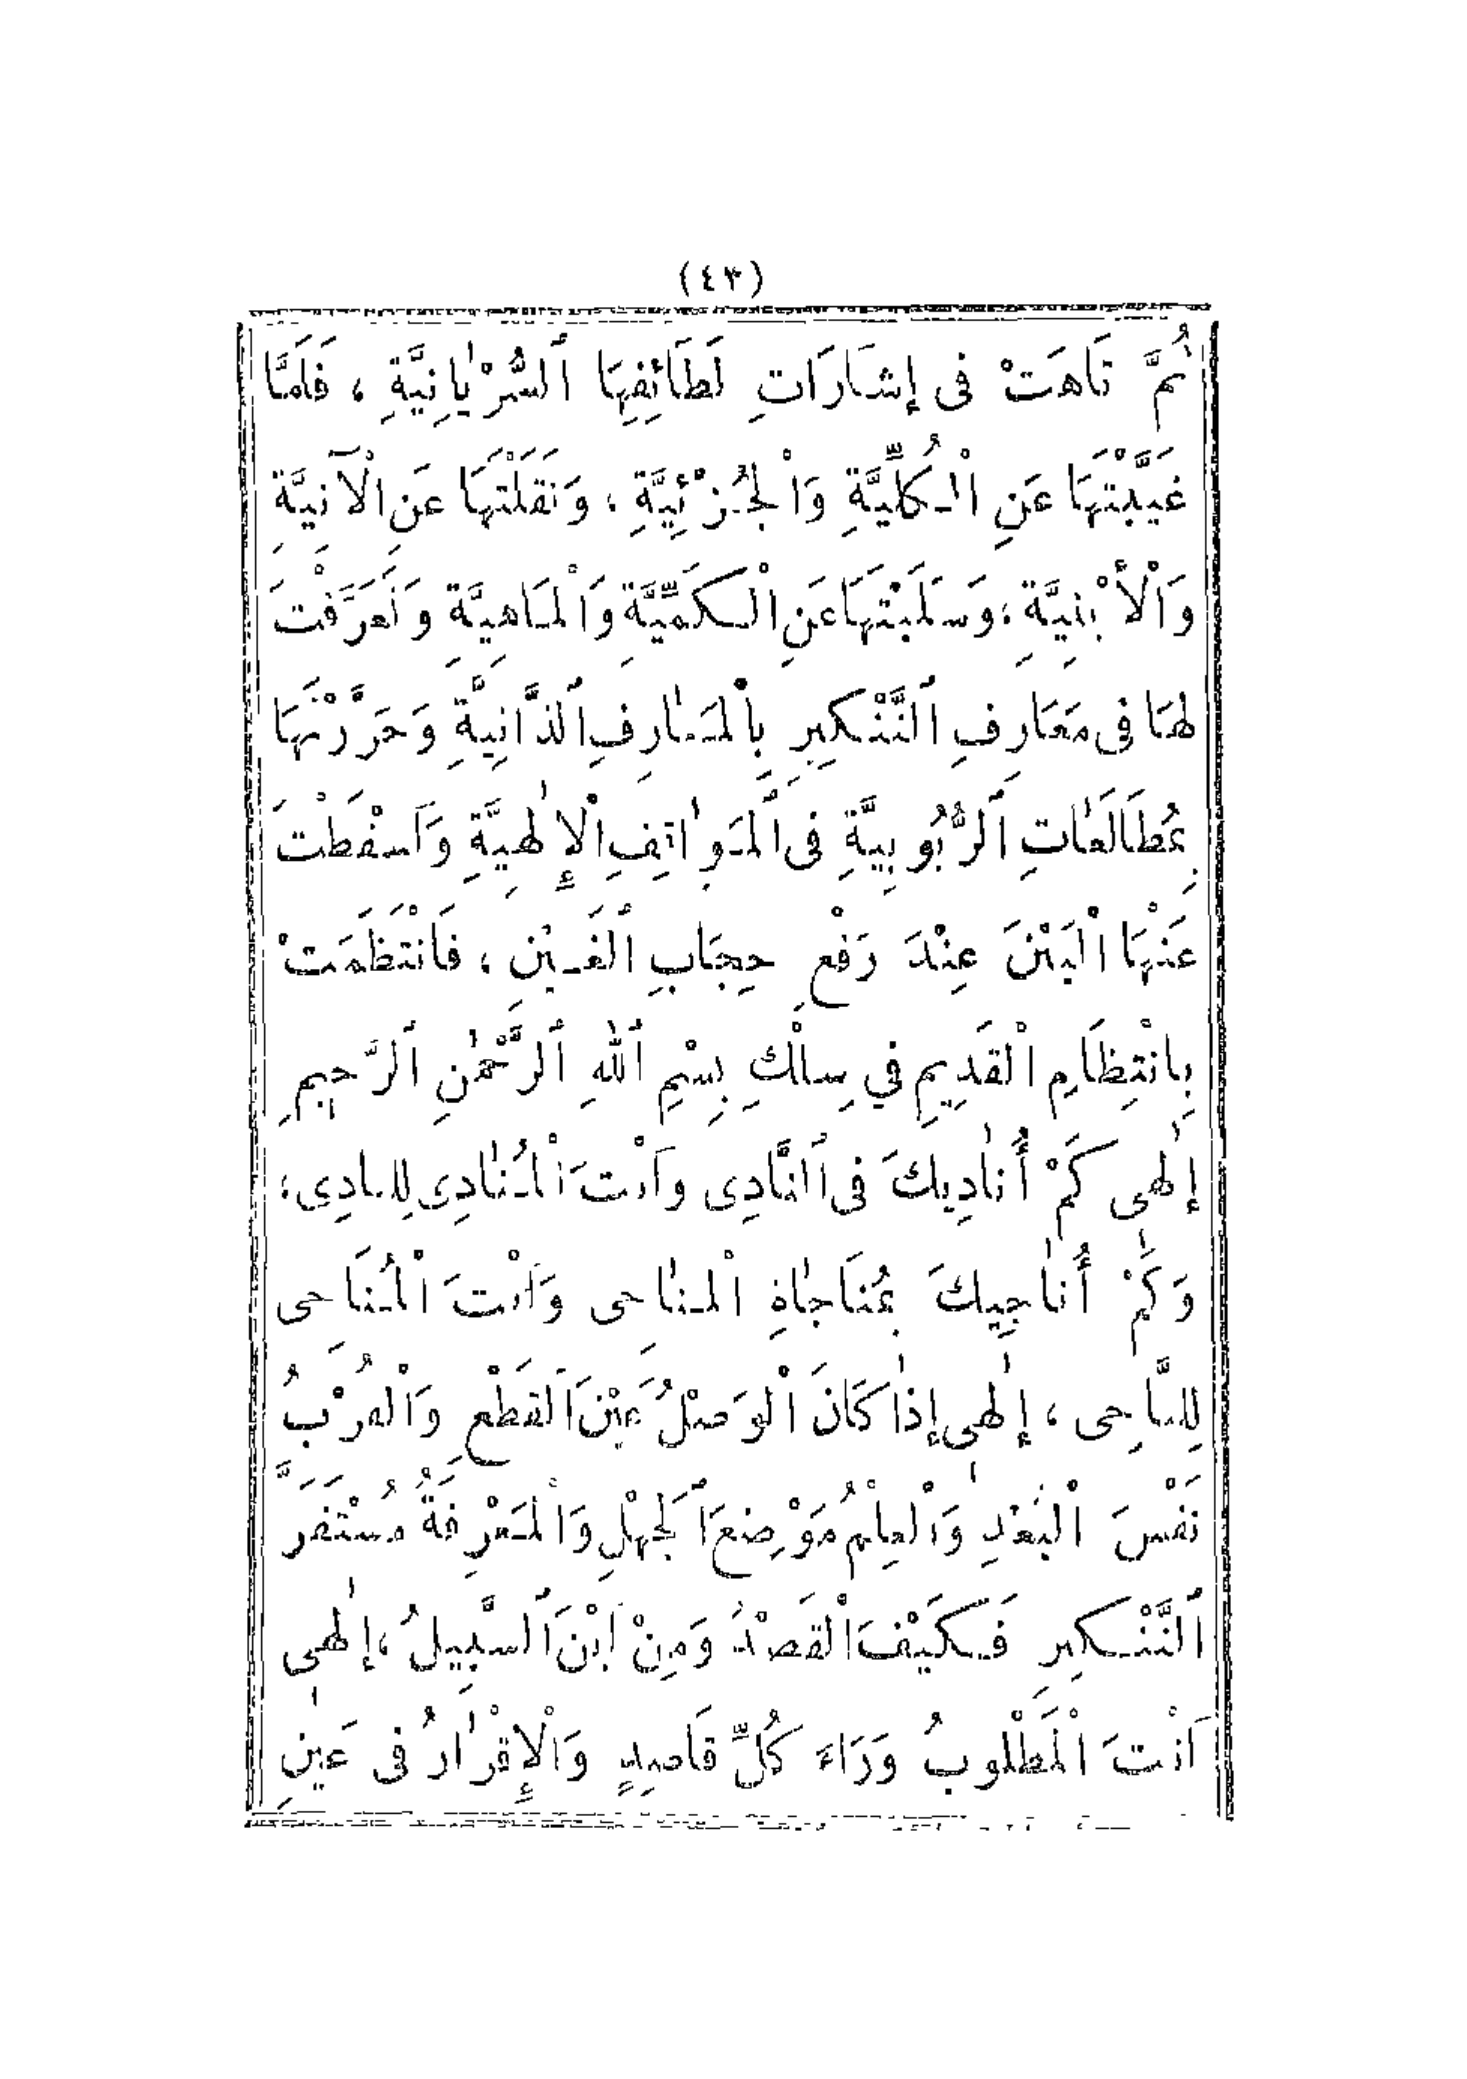 (٤٣)
ثُمَّ تَاهَتْ فى إشَارَاتِ لَطَائِفِهَا ٱلسُّرْيٰانِيَّةِ ، فَلَمَّا
غَيَّبْتَهَا عَنِ الْكُلِّيَّةِ وَالْجُزْئِيَّةِ ، وَنَقَلْتَهَا عَنِ الْآنِيَّةِ
وَالْأَيْنِيَّةِ ، وَسَلَبْتَهَا عَنِ الْكَمِّيَّةِ وَالْمَاهِيَّةِ وَتَعَرَّفْتَ
لهَا فى مَعَارِفِ ٱلتَّنْكِيرِ بِالْمَعٰارِفِ ٱلذَّاتِيَّةِ وَحَرَّرْتَهَا
بِمُطَالَعٰاتِ ٱلرُّبُوبِيَّةِ فى ٱلْمَوٰاقِفِ الْإِلٰهِيَّةِ وَاَسْقَطْتَ
عَنْهَا الْبَيْنَ عِنْدَ رَفْعِ حِجَابِ ٱلْغَيْنِ ، فَانْتَظَمَتْ
بِانْتِظَامِ الْقَدِيمِ فِي سِلْكِ بِسْمِ ٱللهِ ٱلرَّحْمٰنِ ٱلرَّحِيمِ
إِلٰهِى كَمْ أُنٰادِيكَ فى ٱلنَّادِى وَاَنْتَ الْمُنٰادِى لِلنادِى ،
وَكَمْ أُنٰاجِيكَ بِمُنَاجٰاةِ الْمنٰاجِى وَاَنْتَ الْمُنَاجِى
لِلنَّاجِى ، إِلٰهِى إِذٰا كَانَ الْوَصْلُ عَيْنَ الْقَطْعِ وَالْقُرْبُ
نَفْسَ الْبُعْدِ وَالْعِلْمُ مَوْضِعَ ٱلْجَهْلِ وَالْمَعْرِفَةُ مُسْتَقَرَّ
ٱلتَّنْكِيرِ فَكَيْفَ الْقَصْدُ وَمِنْ اَيْنَ ٱلسَّبِيلُ ، إِلٰهِى
اَنْتَ الْمَطْلُوبُ وَرَاءَ كُلِّ قَاصِدٍ وَالْإِقْرٰارُ فى عَيْنِ